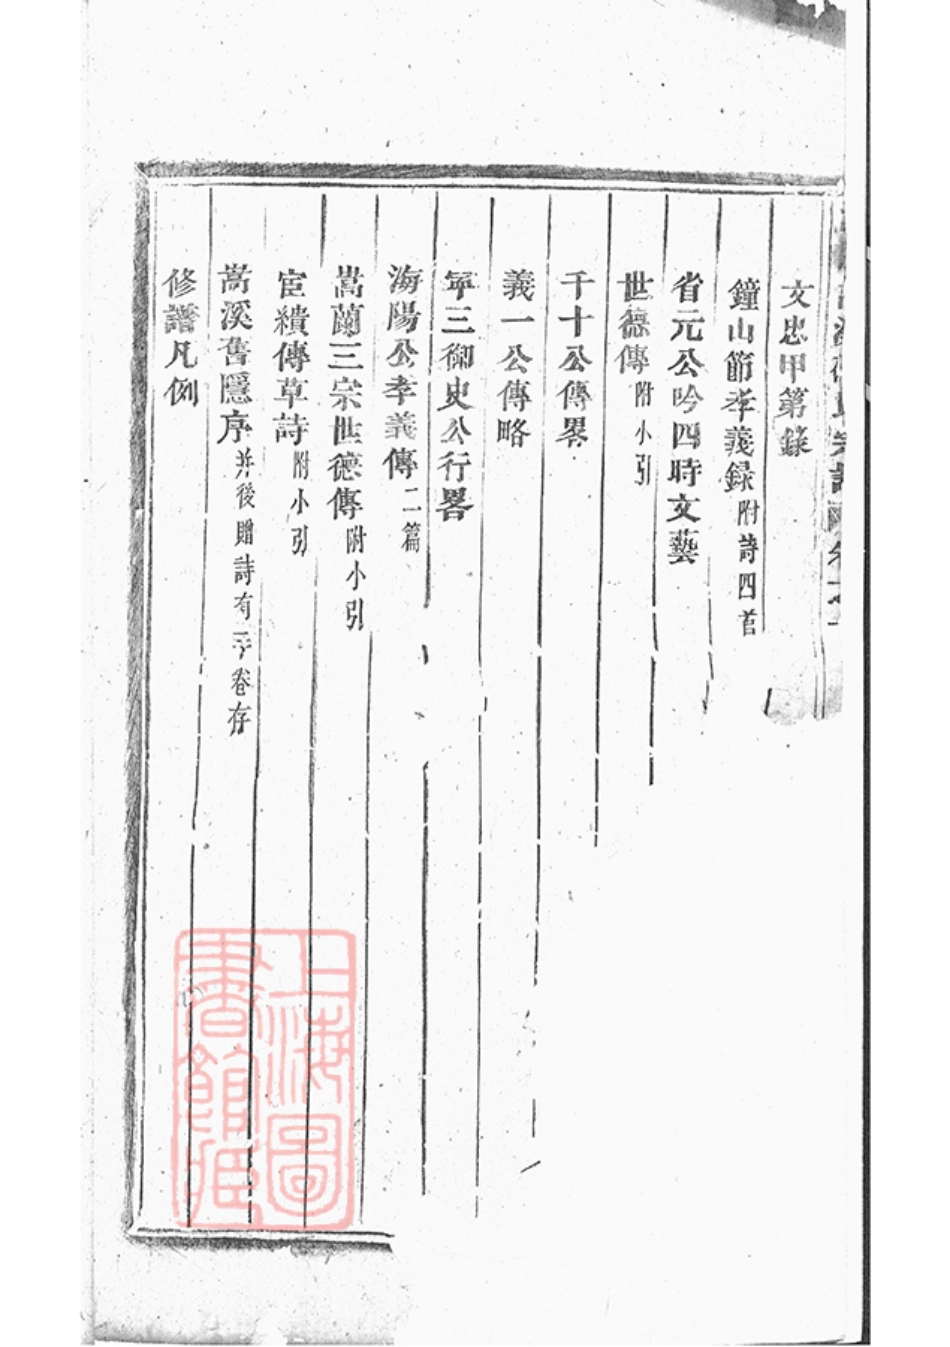 文忠甲第錄
鐘山節孝義録附詩四首
省元公吟四時文藝
世德傳附小引
千十公傳畧
義一公傳略
寧三御史公行畧
海陽公孝義傳二篇
嵩蘭三宗世德傳附小引
宦績傳草詩附小引
嵩溪舊隱序并後贈詩有卷存
修譜凡例
上海圖書館藏